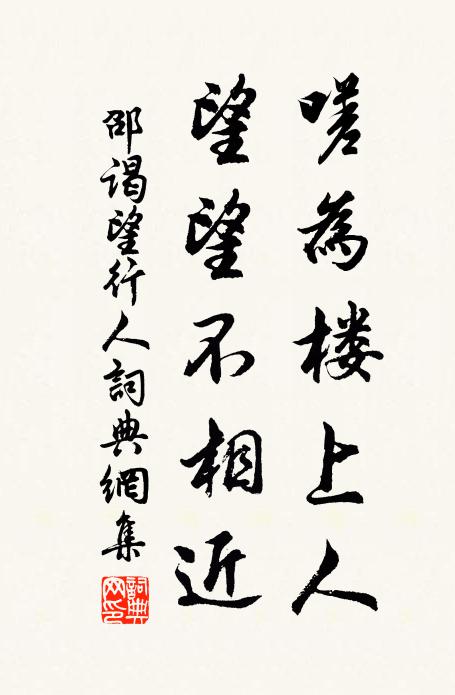 嗟為楼上人
望望不相近
邵谒望行人詞典網集
詞典
网印